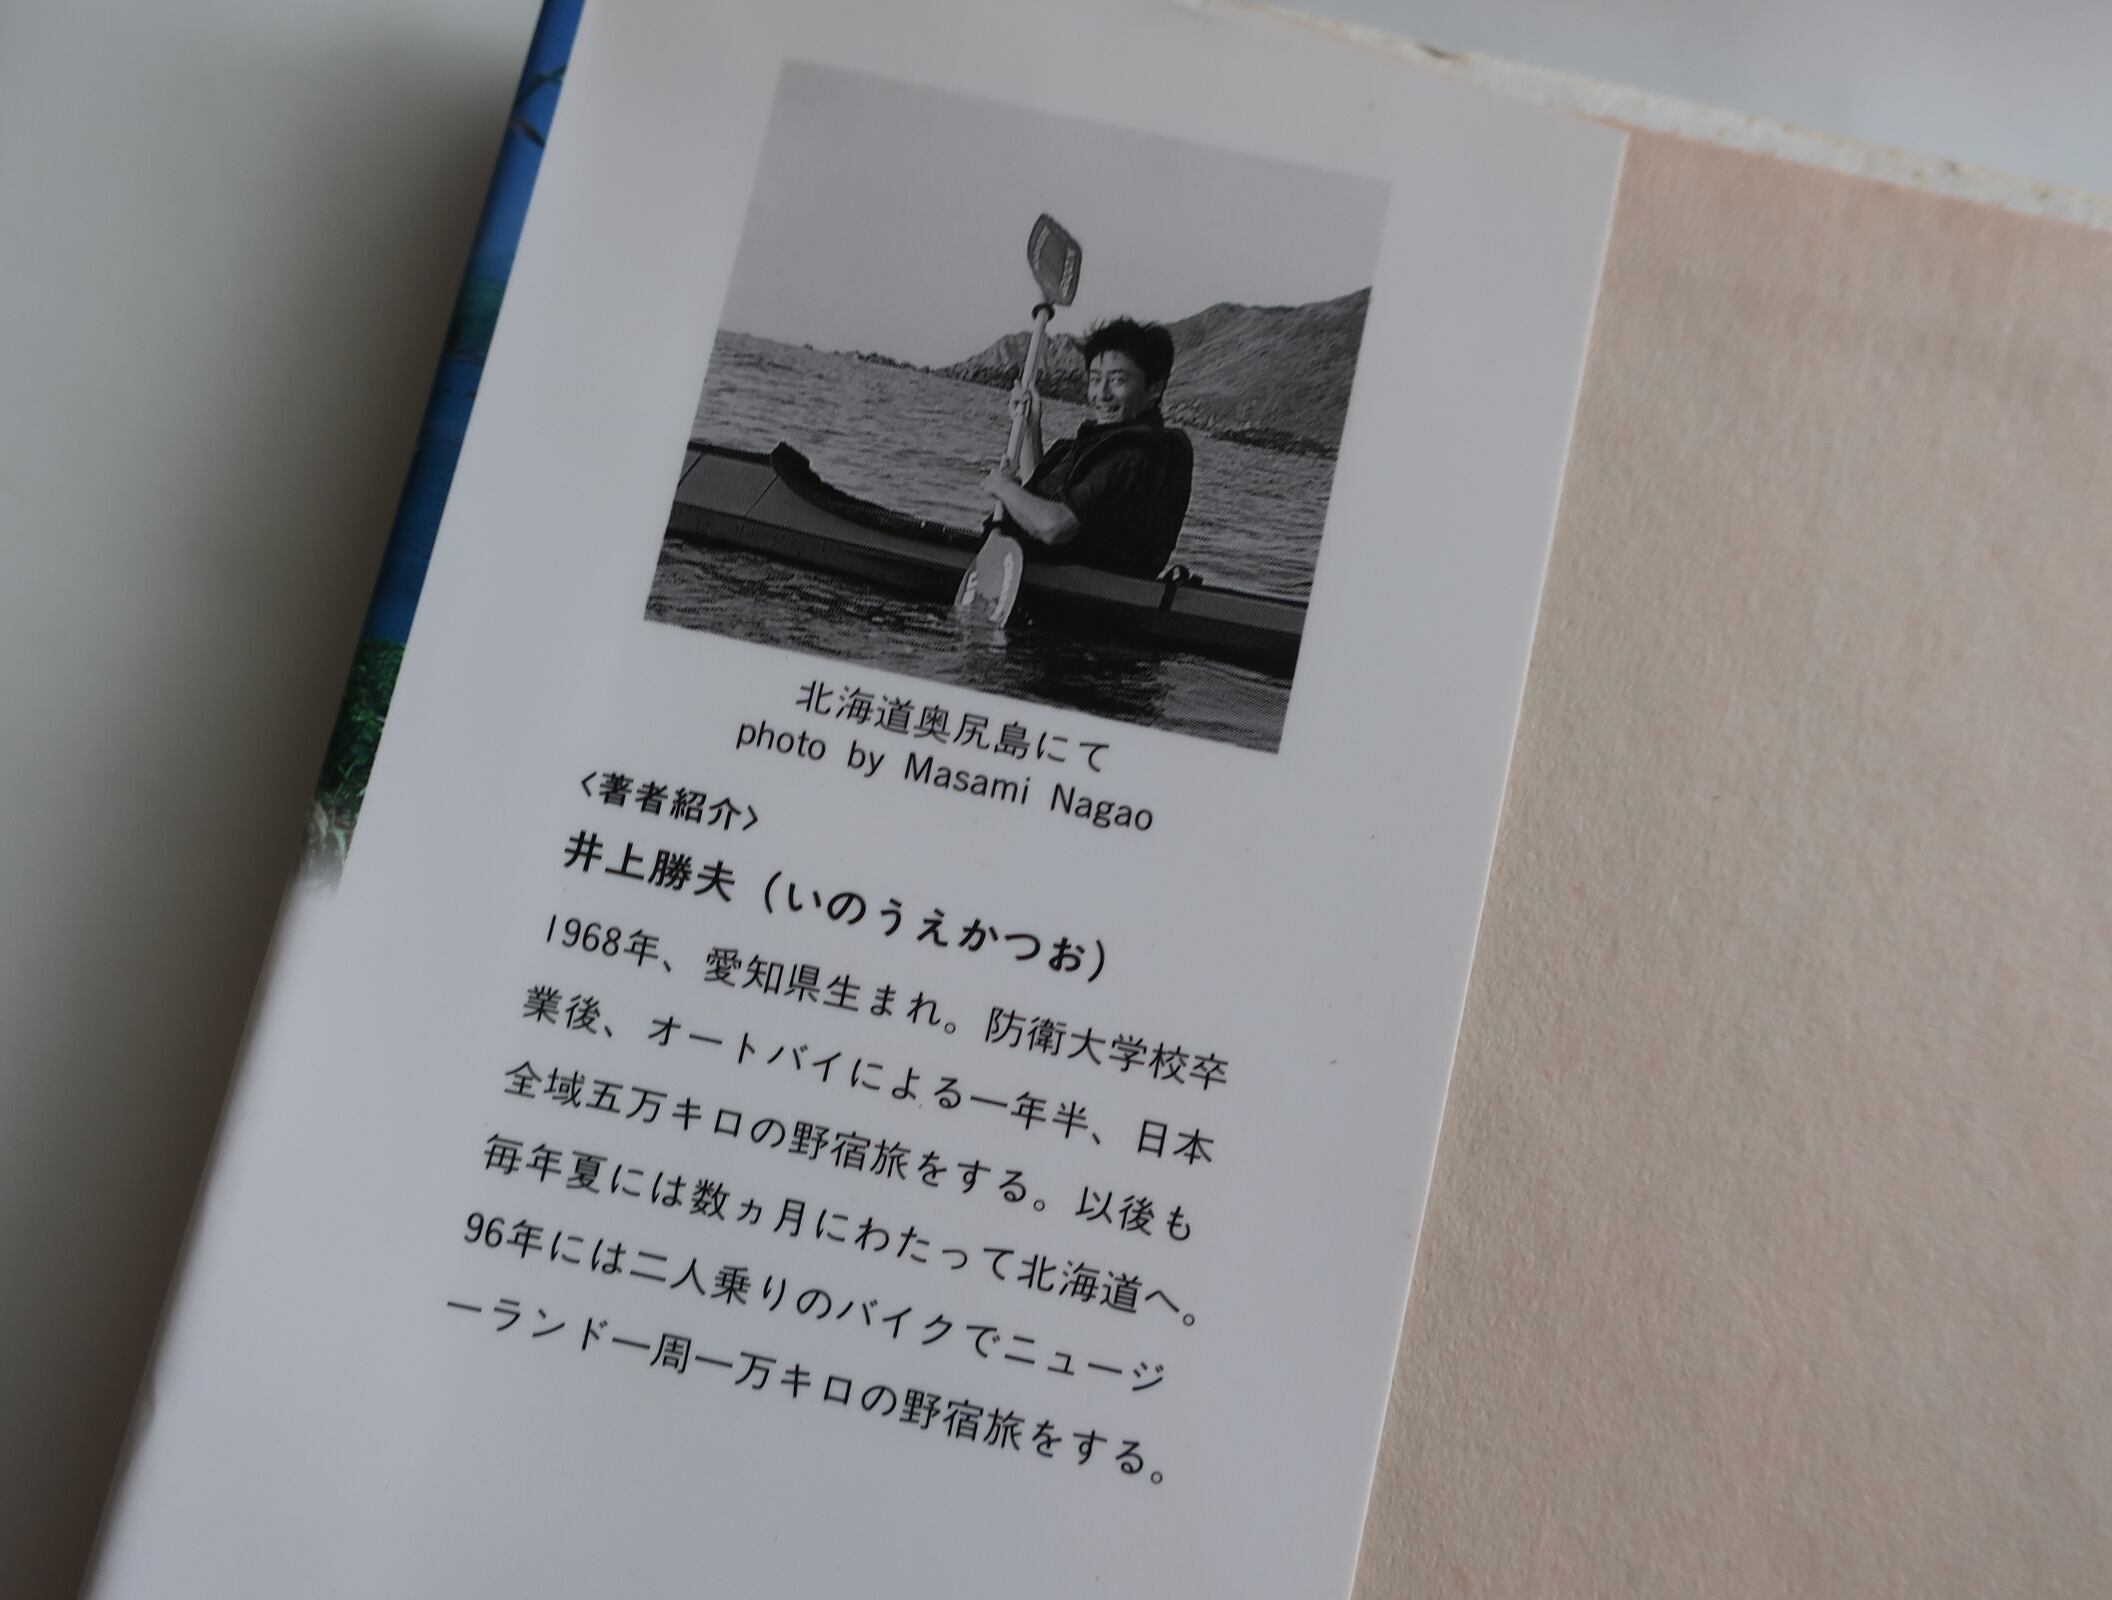 北海道奥尻島にて
photo by Masami Nagao
〈著者紹介〉
井上勝夫（いのうえかつお）
1968年、愛知県生まれ。防衛大学校卒
業後、オートバイによる一年半、日本
全域五万キロの野宿旅をする。以後も
毎年夏には数ヵ月にわたって北海道へ。
96年には二人乗りのバイクでニュージ
ーランド一周一万キロの野宿旅をする。